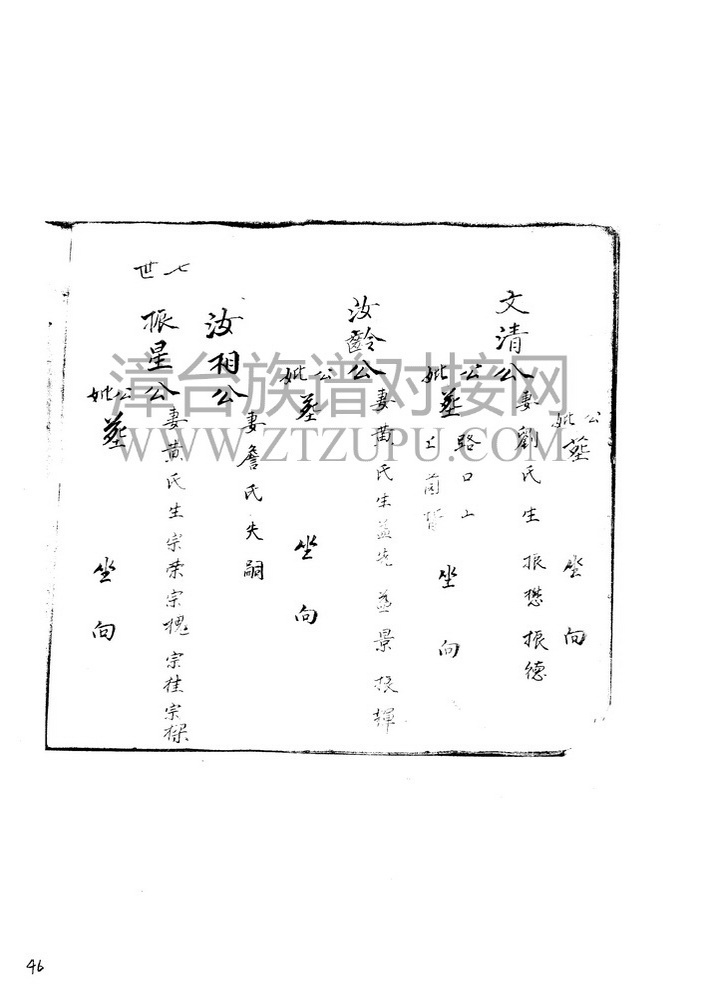 公妣墓 坐 向
文清公 妻劉氏生 振懋 振德
公妣墓 路口上 坐 向
汝齡公 妻黃氏生益先 益景 振輝
公妣墓 坐 向
汝相公 妻詹氏失嗣
七世
振星公 妻黃氏生宗荣宗槐 宗桂宗樑
公妣墓 坐 向
漳台族谱对接网
WWW.ZTZUPU.COM
46